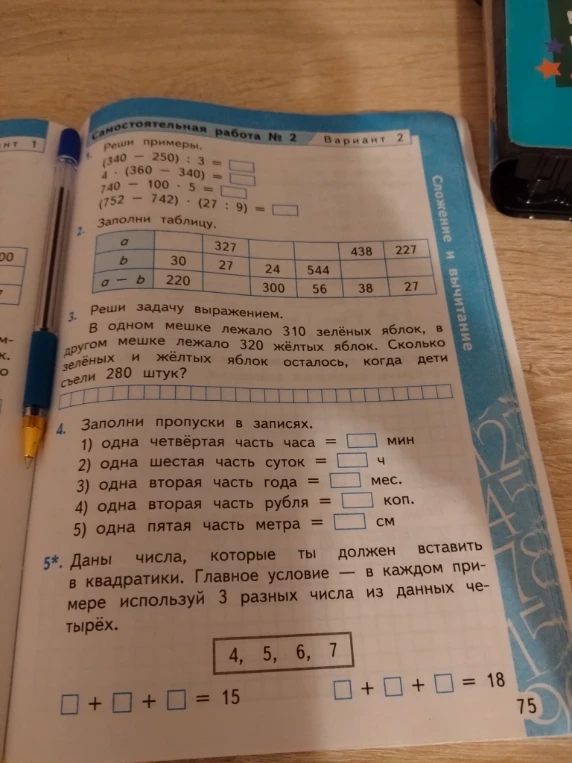 нт 1
Самостоятельная работа № 2 Вариант 2
1. Реши примеры.
(340 − 250) : 3 =
4 · (360 − 340) =
740 − 100 · 5 =
(752 − 742) · (27 : 9) =
2. Заполни таблицу.
a 327 438 227
b 30 27 24 544
a − b 220 300 56 38 27
3. Реши задачу выражением.
В одном мешке лежало 310 зелёных яблок, в
другом мешке лежало 320 жёлтых яблок. Сколько
зелёных и жёлтых яблок осталось, когда дети
съели 280 штук?
4. Заполни пропуски в записях.
1) одна четвёртая часть часа = мин
2) одна шестая часть суток = ч
3) одна вторая часть года = мес.
4) одна вторая часть рубля = коп.
5) одна пятая часть метра = см
5*. Даны числа, которые ты должен вставить
в квадратики. Главное условие — в каждом при-
мере используй 3 разных числа из данных че-
тырёх.
4, 5, 6, 7
□ + □ + □ = 15 □ + □ + □ = 18
75
Сложение и вычитание